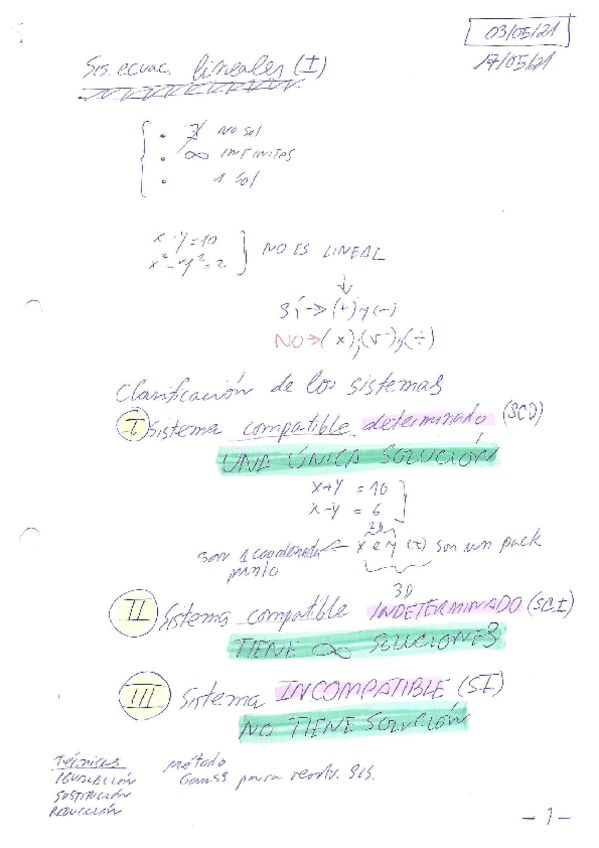 03/05/21
17/05/21
Sis. ecuac. lineales (I)
∄ NO SOL
∞ INFINITOS
1 SOL
x·y=10
x²-y²=2
NO ES LINEAL
↓
Sí → (+) y (-)
NO → (x),(√),(÷)
Clasificación de los sistemas
I Sistema compatible determinado (SCD)
UNA ÚNICA SOLUCIÓN
x+y = 10
x-y = 6
2D
son 1 coordenada ← x e y (z) son un pack
punto
3D
II Sistema compatible INDETERMINADO (SCI)
TIENE ∞ SOLUCIONES
III Sistema INCOMPATIBLE (SI)
NO TIENE SOLUCIÓN
Técnicas
IGUALACIÓN
SUSTITUCIÓN
REDUCCIÓN
Método
Gauss para resolv. sis.
- 1 -